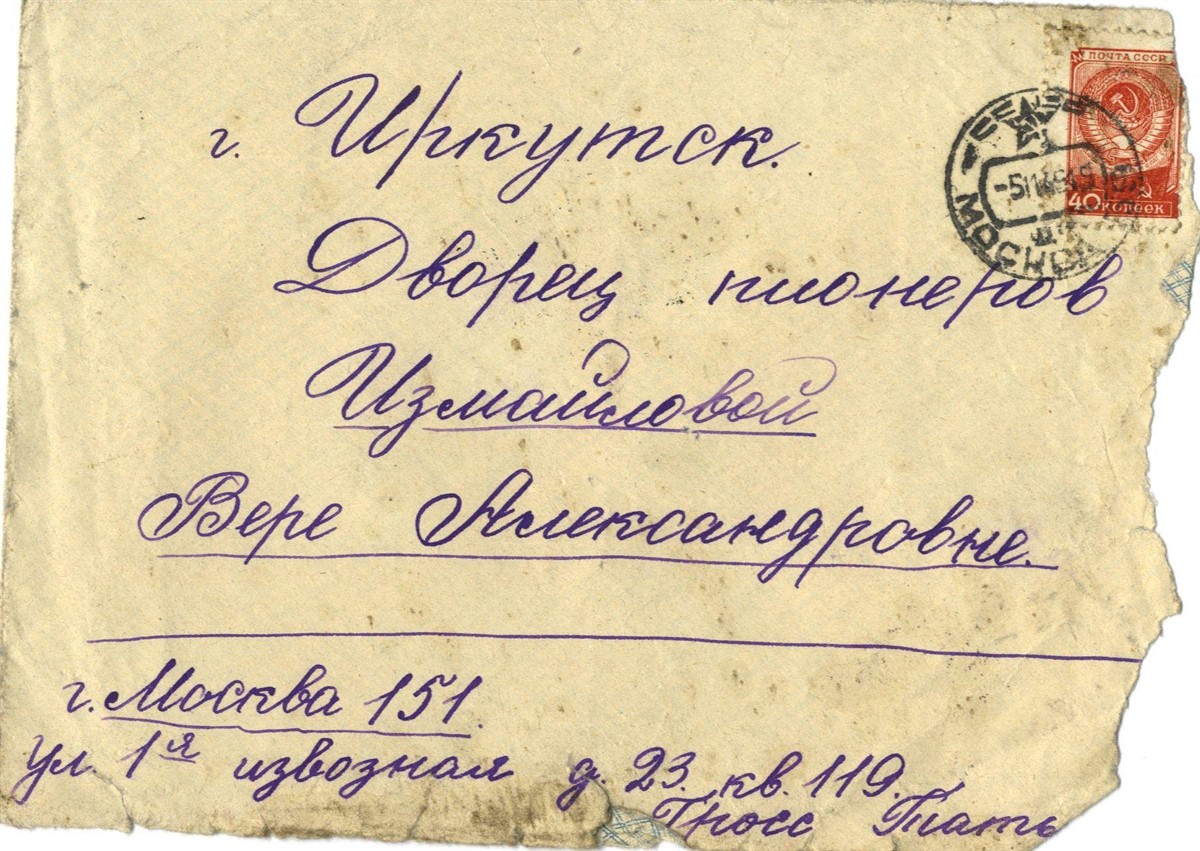 ПОЧТА СССР
40 КОПЕЕК
МОСКВА
г. Иркутск.
Дворец пионеров
Измайловой
Вере Александровне.
г. Москва 151.
ул. 1я извозная д. 23. кв. 119.
Гросс Тать